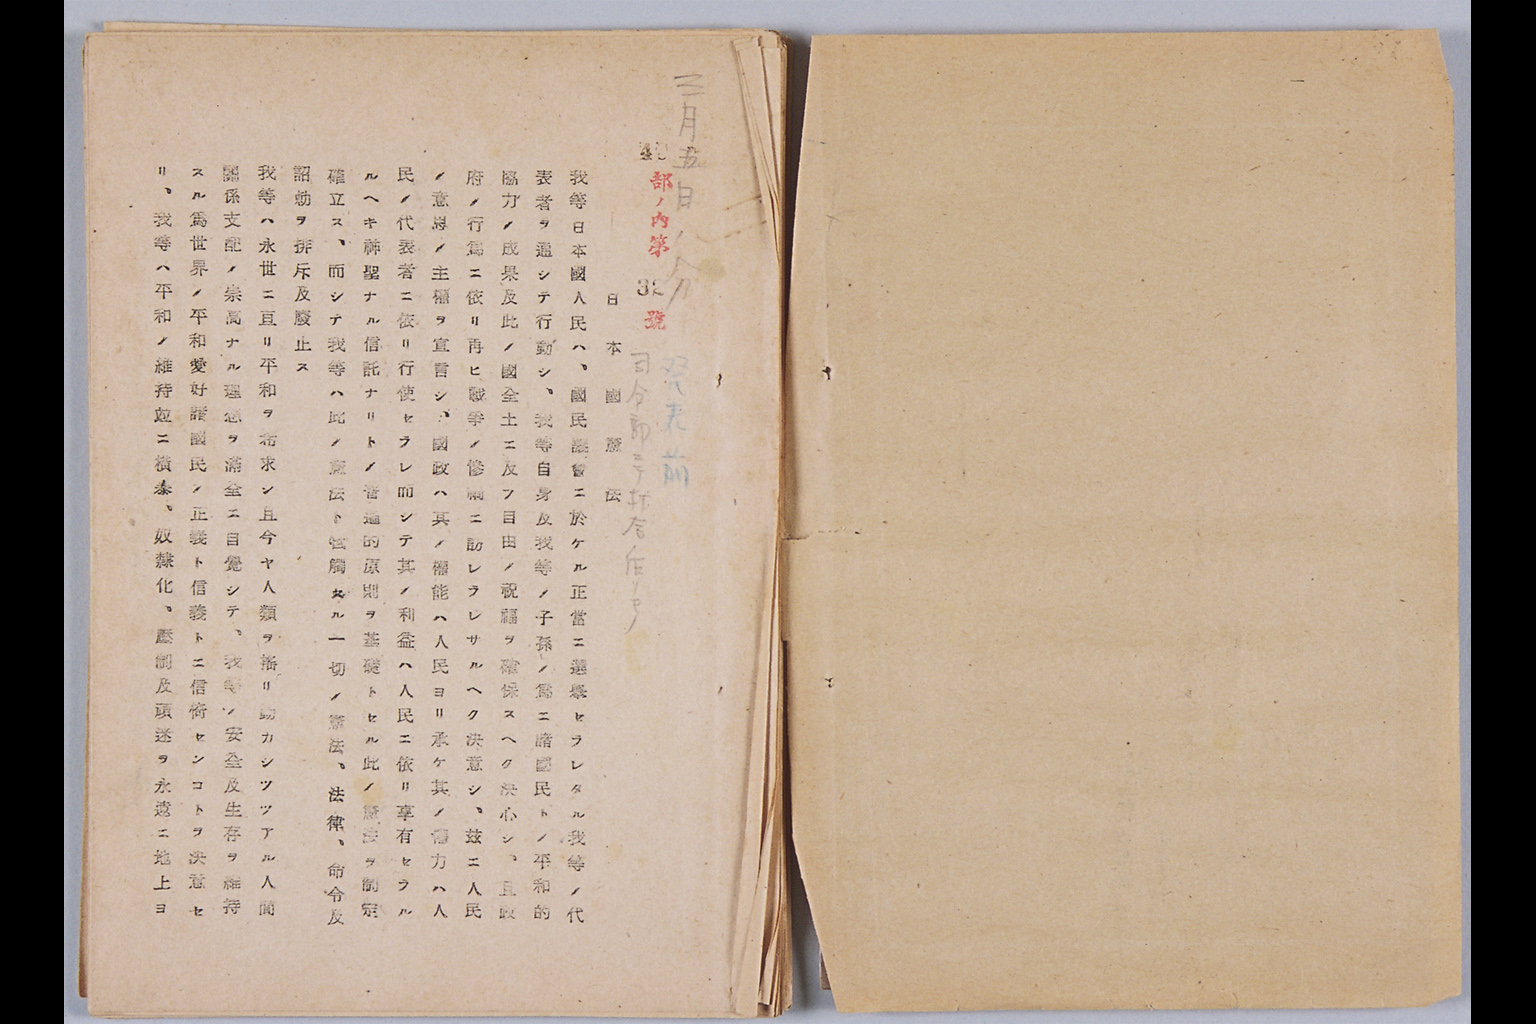 三月五日ノ分
40部ノ内第
號
発表前
日本國憲法
我等日本國人民ハ、國民議會ニ於ケル正當ニ選擧セラレタル我等ノ代
表者ヲ通シテ行動シ、我等自身及我等ノ子孫ノ爲ニ諸國民トノ平和的
協力ノ成果及此ノ國全土ニ及フ自由ノ祝福ヲ確保スヘク決心シ、且政
府ノ行爲ニ依リ再ヒ戰爭ノ慘禍ニ訪レラレサルヘク決意シ、玆ニ人民
ノ意思ノ主權ヲ宣言シ、國政ハ其ノ權能ハ人民ヨリ承ケ其ノ權力ハ人
民ノ代表者ニ依リ行使セラレ而シテ其ノ利益ハ人民ニ依リ享有セラル
ルヘキ神聖ナル信託ナリトノ普遍的原則ヲ基礎トセル此ノ憲法ヲ制定
確立ス、而シテ我等ハ此ノ憲法ト牴觸スル一切ノ憲法、法律、命令及
詔勅ヲ排斥及廢止ス
我等ハ永世ニ亘リ平和ヲ希求シ且今ヤ人類ヲ搖リ動カシツツアル人間
關係支配ノ崇高ナル理想ヲ滿全ニ自覺シテ、我等ノ安全及生存ヲ維持
スル爲世界ノ平和愛好諸國民ノ正義ト信義トニ信倚センコトヲ決意セ
リ、我等ハ平和ノ維持竝ニ橫暴、奴隸化、壓制及頑迷ヲ永遠ニ地上ヨ